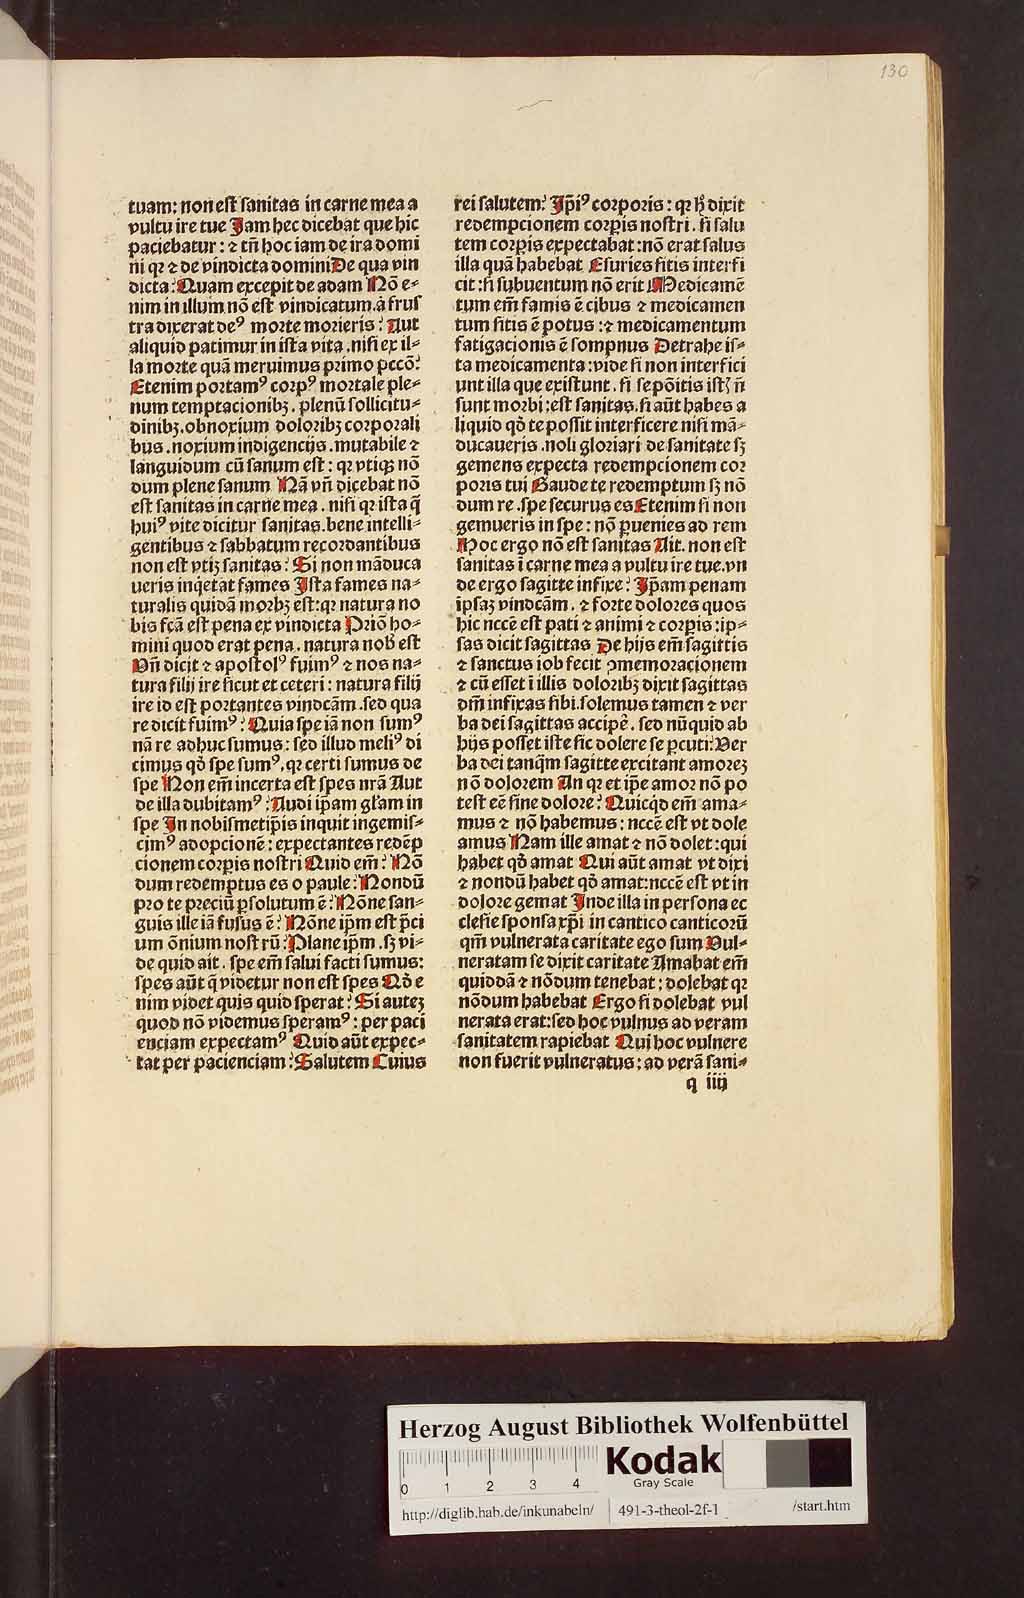 130
tuam: non est sanitas in carne mea a
vultu ire tue Jam hec dicebat que hic
paciebatur: ⁊ tn̄ hoc iam de ira domi
ni qꝛ ⁊ de vindicta domini De qua vin
dicta: Quam excepit de adam Nō e⸗
nim in illum nō est vindicatum. a frus
tra dixerat deꝰ morte morieris? Aut
aliquid patimur in ista vita. nisi ex il⸗
la morte quā meruimus primo pccō?
Etenim portamꝰ corpꝰ mortale ple⸗
num temptacionibꝫ. plenū sollicitu⸗
dinibꝫ. obnoxium doloribꝫ corporali
bus. noxium indigencijs. mutabile ⁊
languidum cū sanum est: qꝛ vtiqꝫ nō
dum plene sanum Nā vn̄ dicebat nō
est sanitas in carne mea. nisi qꝛ ista q̄
huiꝰ vite dicitur sanitas. bene intelli⸗
gentibus ⁊ sabbatum recordantibus
non est vtiqꝫ sanitas? Si non māduca
ueris inqetat fames Jsta fames na⸗
turalis quidā morbꝫ est: qꝛ natura no
bis fcā est pena ex vindicta Priō ho⸗
mini quod erat pena. natura nob est
Vn̄ dicit ⁊ apostolꝰ fuimꝰ ⁊ nos na⸗
tura filij ire sicut et ceteri: natura filij
ire id est portantes vindcām. sed qua
re dicit fuimꝰ? Quia spe iā non sumꝰ
nā re adhuc sumus: sed illud meliꝰ di
cimus qd̄ spe sumꝰ, qꝛ certi sumus de
spe Non em̄ incerta est spes nrā Aut
de illa dubitamꝰ? Audi ip̄am gl̄am in
spe Jn nobismetip̄is inquit ingemis⸗
cimꝰ adopcionē: expectantes redēp
cionem corꝑis nostri Quid em̄? Nō
dum redemptus es o paule? Nondū
pro te preciū ꝑsolutum ē? Nōne san⸗
guis ille iā fusus ē? Nōne ip̄m est p̄ci
um ōnium nostrū? Plane ip̄m. sꝫ vi⸗
de quid ait. spe em̄ salui facti sumus:
spes aūt q̄ videtur non est spes Qd̄ e
nim videt quis quid sperat? Si auteꝫ
quod nō videmus speramꝰ: per paci
enciam expectamꝰ Quid aūt expec⸗
tat per pacienciam? Salutem Cuius
rei salutem? Jp̄iꝰ corporis: qꝛ hͦ dixit
redempcionem corꝑis nostri. si salu
tem corꝑis expectabat: nō erat salus
illa quā habebat Esuries sitis interfi
cit: si subuentum nō erit Medicamē
tum em̄ famis ē cibus ⁊ medicamen
tum sitis ē potus: ⁊ medicamentum
fatigacionis ē sompnus Detrahe is⸗
ta medicamenta: vide si non interfici
unt illa que existunt. si sepōitis istꝭ n̄
sunt morbi: est sanitas. si aūt habes a
liquid qd̄ te possit interficere nisi mā⸗
ducaueris. noli gloriari de sanitate sꝫ
gemens expecta redempcionem cor
poris tui Gaude te redemptum sꝫ nō
dum re. spe securus es Etenim si non
gemueris in spe: nō ꝑuenies ad rem
Hoc ergo nō est sanitas Ait. non est
sanitas ī carne mea a vultu ire tue. vn
de ergo sagitte infixe? Jp̄am penam
ip̄saꝫ vindcām. ⁊ forte dolores quos
hic nccē est pati ⁊ animi ⁊ corꝑis: ip⸗
sas dicit sagittas De hijs em̄ sagittis
⁊ sanctus iob fecit ꝯmemoracionem
⁊ cū esset ī illis doloribꝫ dixit sagittas
dm̄ infixas sibi. solemus tamen ⁊ ver
ba dei sagittas accipē. sed nūquid ab
hijs posset iste sic dolere se ꝑcuti? Ver
ba dei tanqm̄ sagitte excitant amoreꝫ
nō dolorem An qꝛ et ip̄e amor nō po
test eē sine dolore? Quicqd em̄ ama⸗
mus ⁊ nō habemus: nccē est vt dole
amus Nam ille amat ⁊ nō dolet: qui
habet qd̄ amat Qui aūt amat vt dixi
⁊ nondū habet qd̄ amat: nccē est vt in
dolore gemat Jnde illa in persona ec
clesie sponsa xp̄i in cantico canticorū
qm̄ vulnerata caritate ego sum Vul⸗
neratam se dixit caritate Amabat em̄
quiddā ⁊ nōdum tenebat: dolebat qꝛ
nōdum habebat Ergo si dolebat vul
nerata erat: sed hoc vulnus ad veram
sanitatem rapiebat Qui hoc vulnere
non fuerit vulneratus: ad verā sani⸗
q iiij
Herzog August Bibliothek Wolfenbüttel
0 1 2 3 4
Kodak
Gray Scale
http://diglib.hab.de/inkunabeln/ 491-3-theol-2f-1 /start.htm